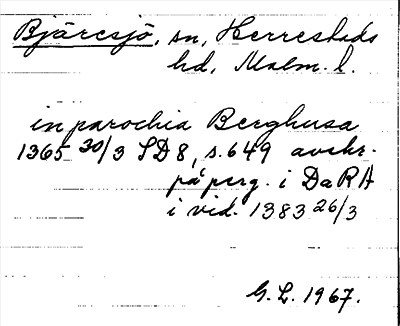 Bjäresjö, sn, Herrestads
hd, Malm. l.
in parochia Berghusa
1365 30/3 SD8, s. 649 avskr.
på perg. i DaRA
i vid. 1383 26/3
G. L. 1967.